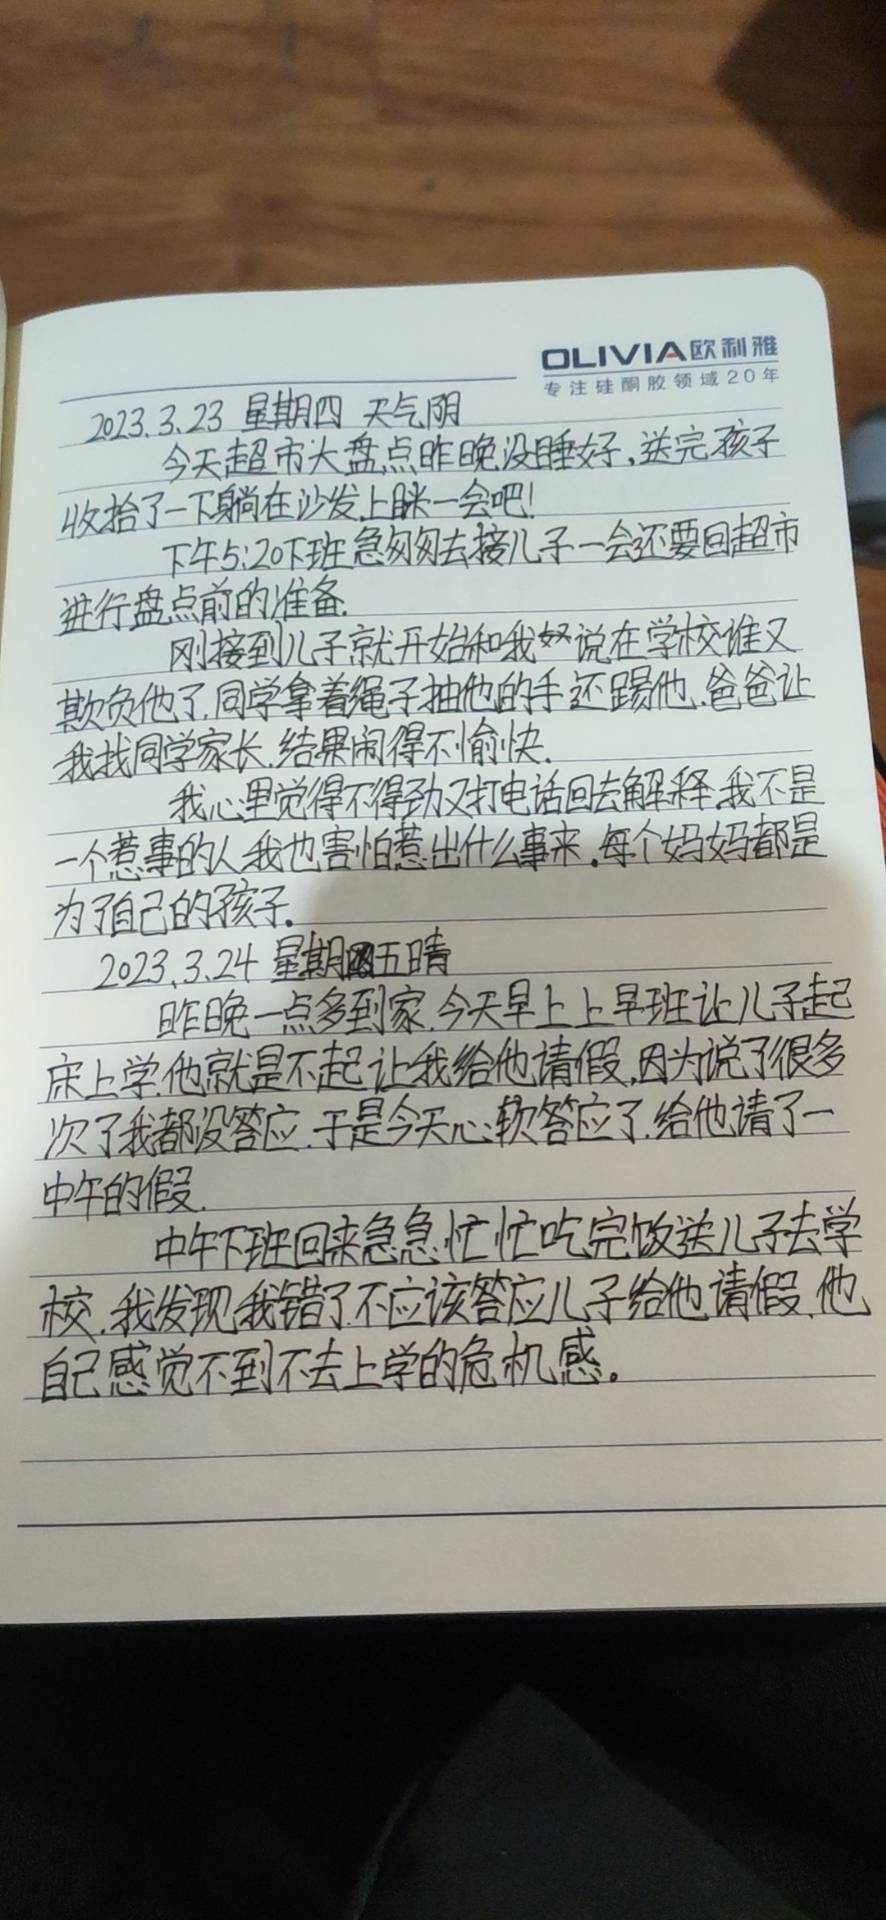 OLIVIA欧利雅
专注硅酮胶领域20年
2023.3.23 星期四 天气阴
今天超市大盘点昨晚没睡好,送完孩子
收拾了一下躺在沙发上眯一会吧!
下午5:20下班急匆匆去接儿子一会还要回超市
进行盘点前的准备.
刚接到儿子就开始和我说在学校谁又
欺负他了.同学拿着绳子抽他的手还踢他.爸爸让
我找同学家长.结果闹得不愉快.
我心里觉得不得劲又打电话回去解释.我不是
一个惹事的人我也害怕惹出什么事来.每个妈妈都是
为了自己的孩子.
2023.3.24 星期五晴
昨晚一点多到家.今天早上上早班让儿子起
床上学.他就是不起让我给他请假,因为说了很多
次了我都没答应.于是今天心软答应了.给他请了一
中午的假.
中午下班回来急急忙忙吃完饭送儿子去学
校.我发现我错了不应该答应儿子给他请假.他
自己感觉不到不去上学的危机感。